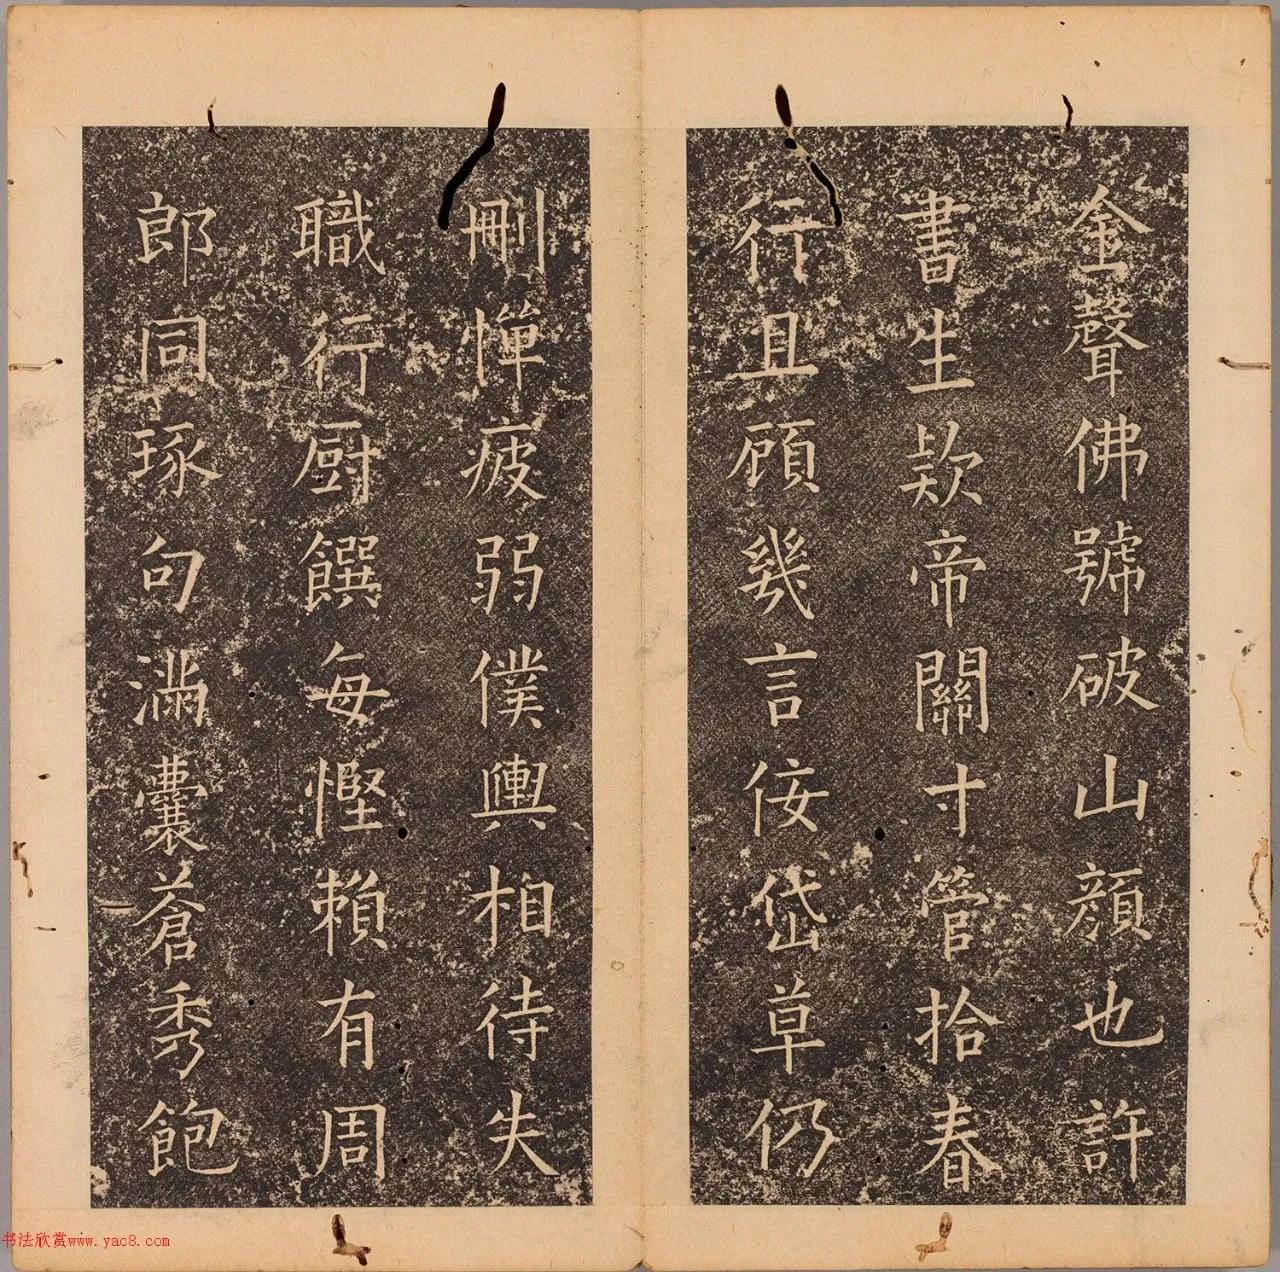 金聲佛號破山顏也許
書生欵帝關寸管拾春
行且顧幾言侒岱草仍
刪憚疲弱僕輿相待失
職行厨饌每慳賴有周
郎同琢句滿囊蒼秀飽
书法欣赏www.yac8.com